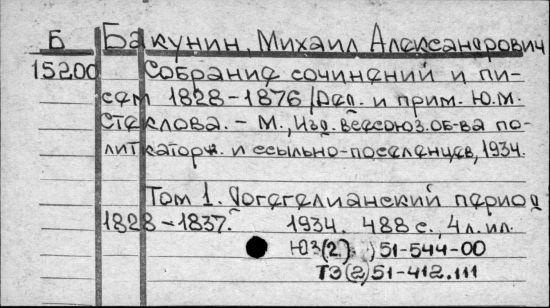 Б Бакунин, Михаил Александрович
15200 Собрание сочинений и пи-
сем 1828-1876 /Ред. и прим. Ю.М.
Стеклова. - М., Изд. всесоюз. об-ва по-
литкаторж. и ссыльно-поселенцев, 1934.
Том 1. Догегелианский период
1828-1837. 1934. 488 с., 4 л. ил.
ЮЗ(2) )51-544-00
ТЭ(2)51-412.111